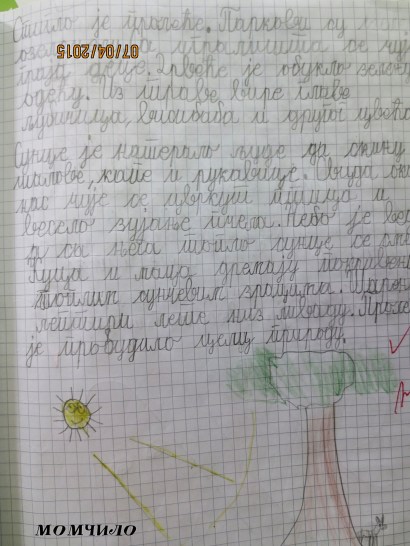 Стигло је пролеће. Паркови су
а игралишта се чује
07/04/2015
глас деце. Дрвеће је обукло зелену
одећу. Из траве вире главе
љубичица, висибаба и другог цвећа
Сунце је натерало људе да скину
шалове, капе и рукавице. Свуда око
нас чује се цвркут птица и
весело зујање пчела. Небо је
а са њега топло сунце се
Куца и маца дремају
топлим сунчевим зрацима. Шарени
лептири лете низ ливаду. Пролеће
је пробудило целу природу.
МОМЧИЛО